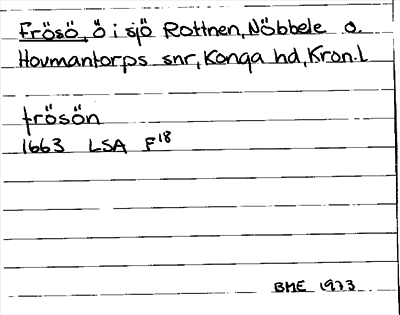 Frösö, ö i sjö Rottnen, Nöbbele o.
Hovmantorps snr, Konga hd, Kron.l
frösön
1663 LSA F18
BME 1973